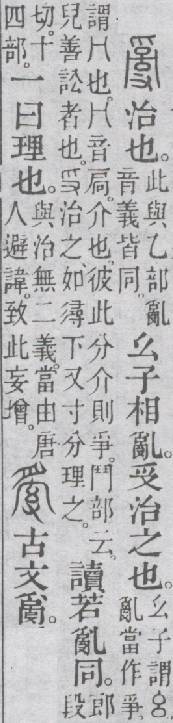 𤔔治也。此與乙部亂音義皆同。幺子相亂。𠬪治之也。幺子謂亂當作爭。
謂冂也。冂音扃。介也。彼此分介則爭。鬥部云。兒善訟者也。𠬪治之。如㝷下又寸分理之。讀若亂同。郎段
切。十四部。一曰理也。與治無二義。當由唐人避諱。致此妄增。古文𤔔。